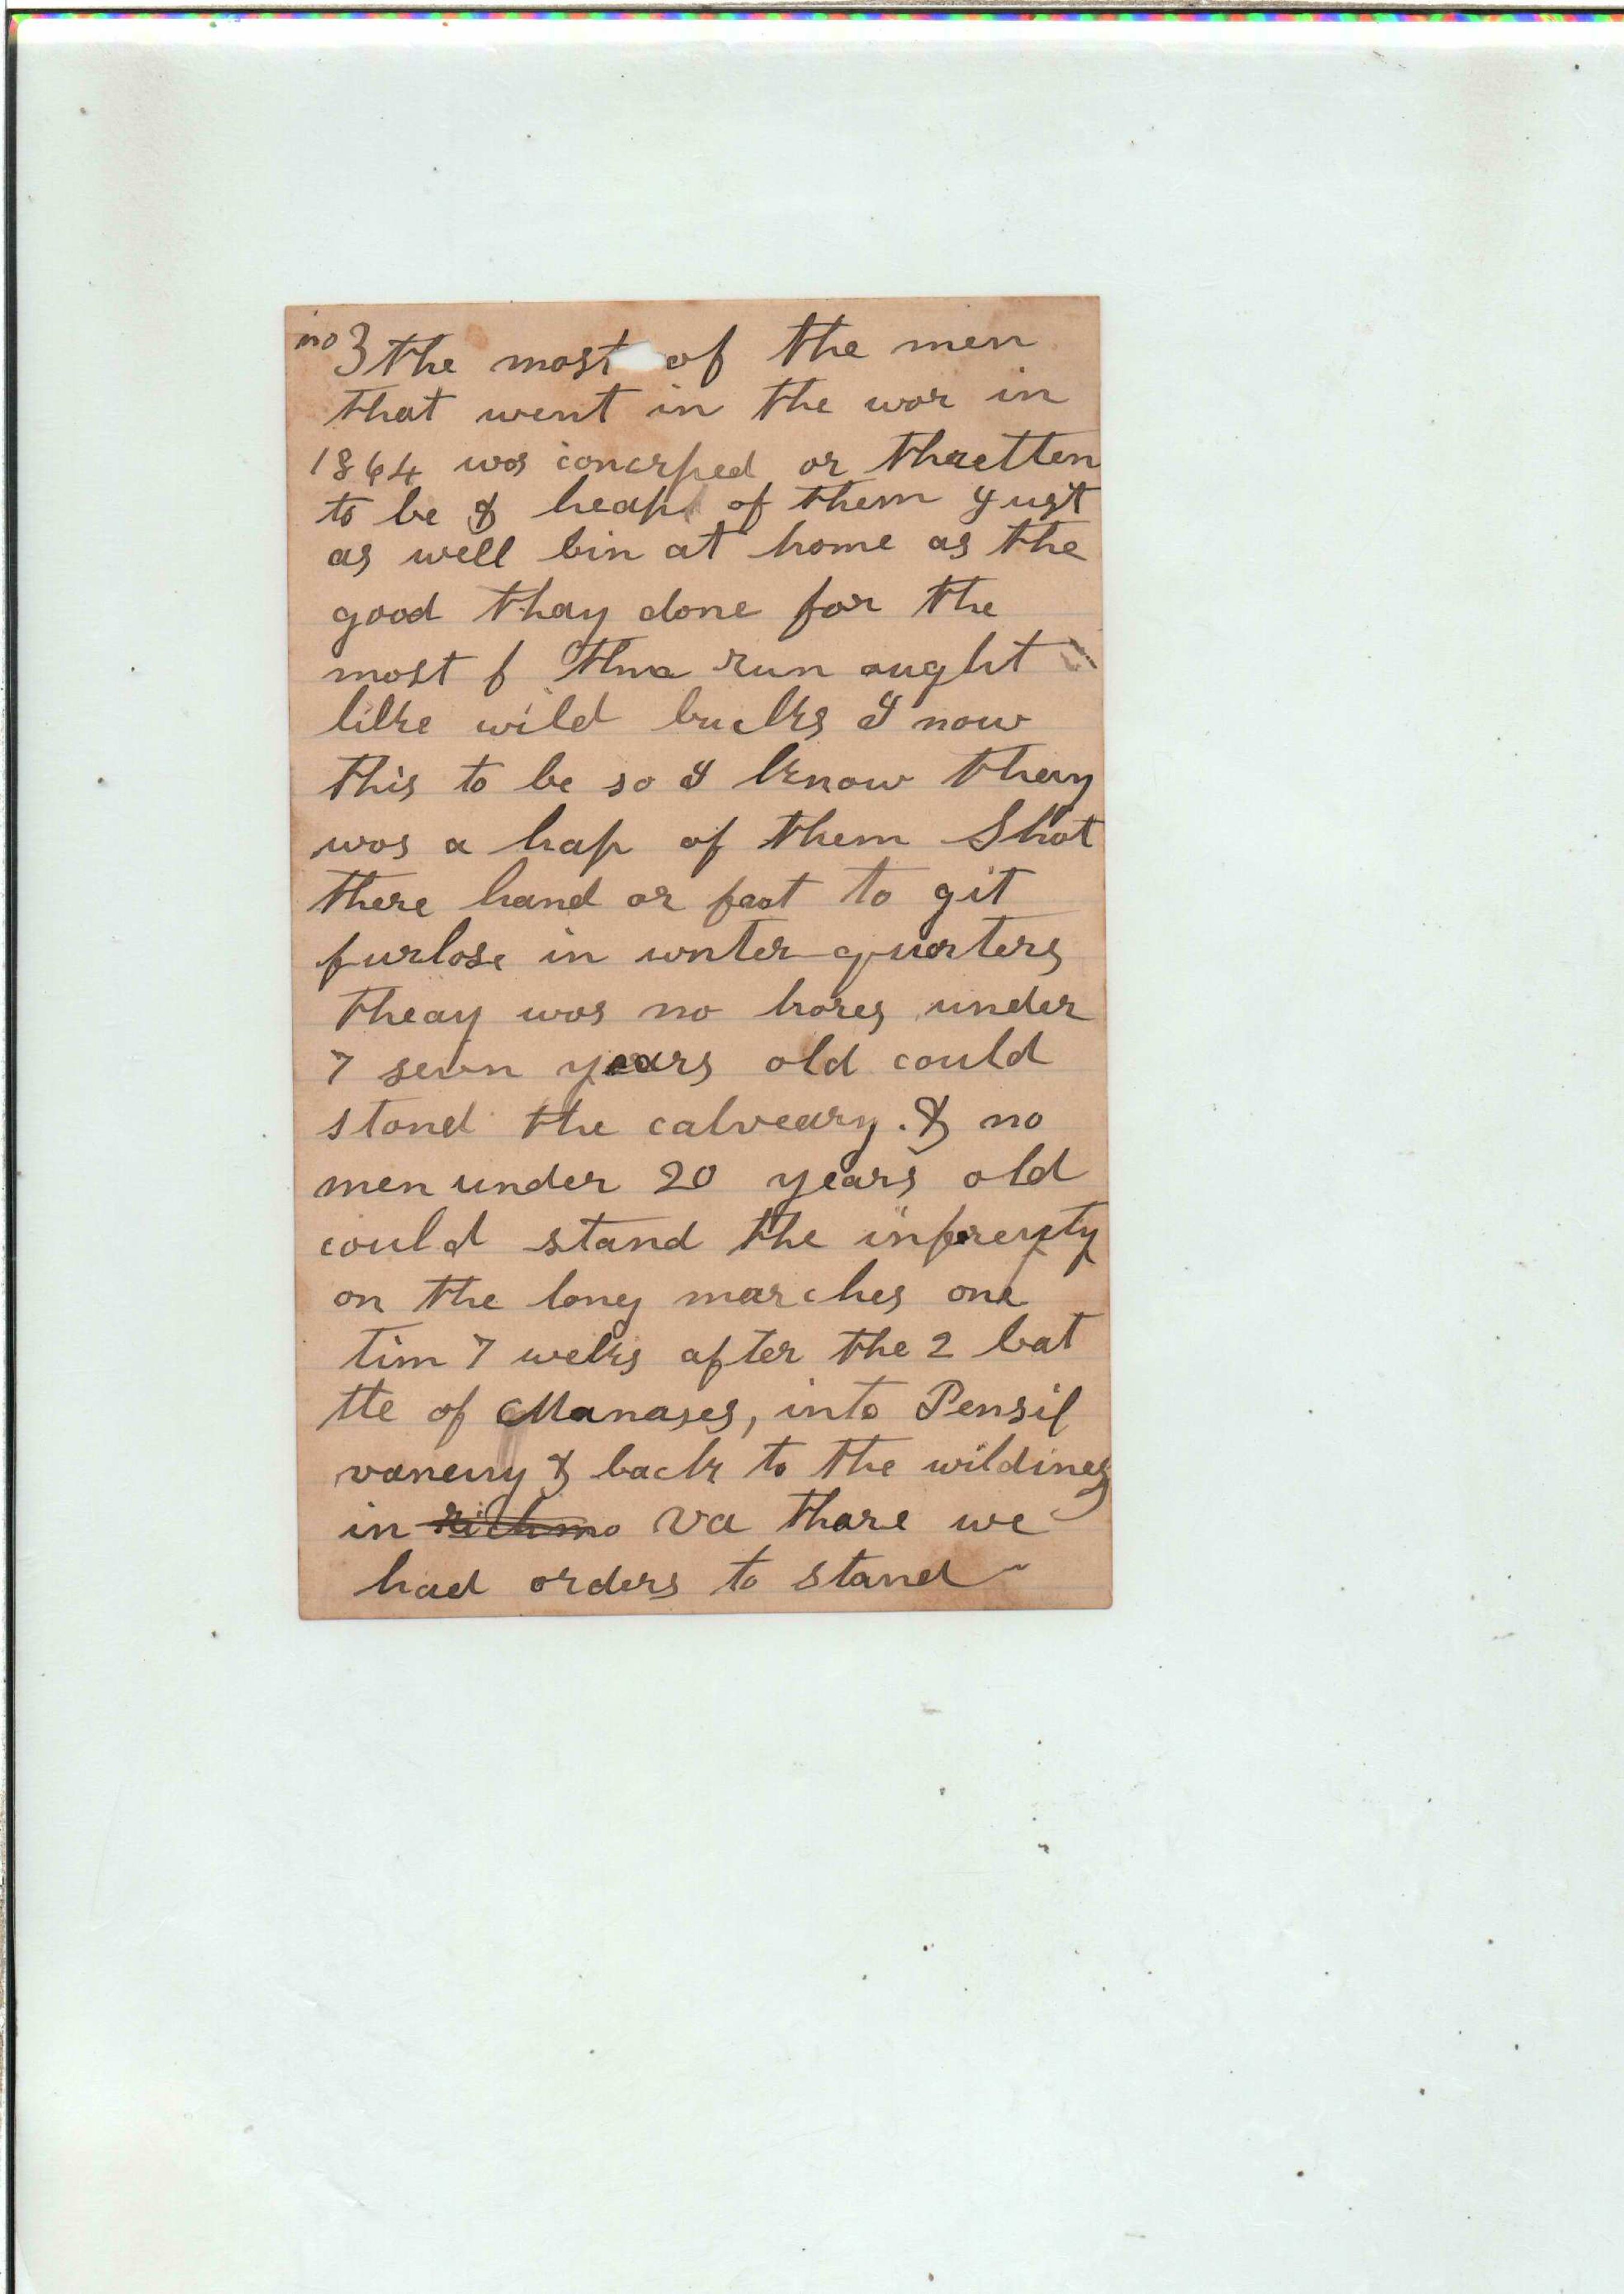 no 3 the most of the men
that went in the war in
1864 was concrped or thretten
to be & heap of them yust
as well bin at home as the
good thay done for the
most f run aught
like wild bucks I now
this to be so I know theay
was a hap of them Shot
there hand or feat to git
furlose in wnter quarters
theay was no hores under
7 sevn years old could
stand the calveary. & no
men under 20 years old
could stand the
on the long marches one
tim 7 weks after the 2 bat
tle of Manases, into Pensil
vaneny & back to the wildines
in richmo va thare we
had orders to stand